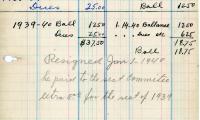 Dues 25.00 Ball 12.50
1939-40 Ball 12.50 1.14.40 Ballance 12.50
Dues 25.00 " Dues 6.25
$37.50 18.75
Ball 18.75
Resigned Jan 1. 1940
he paid to the committee
for the rest of 1939